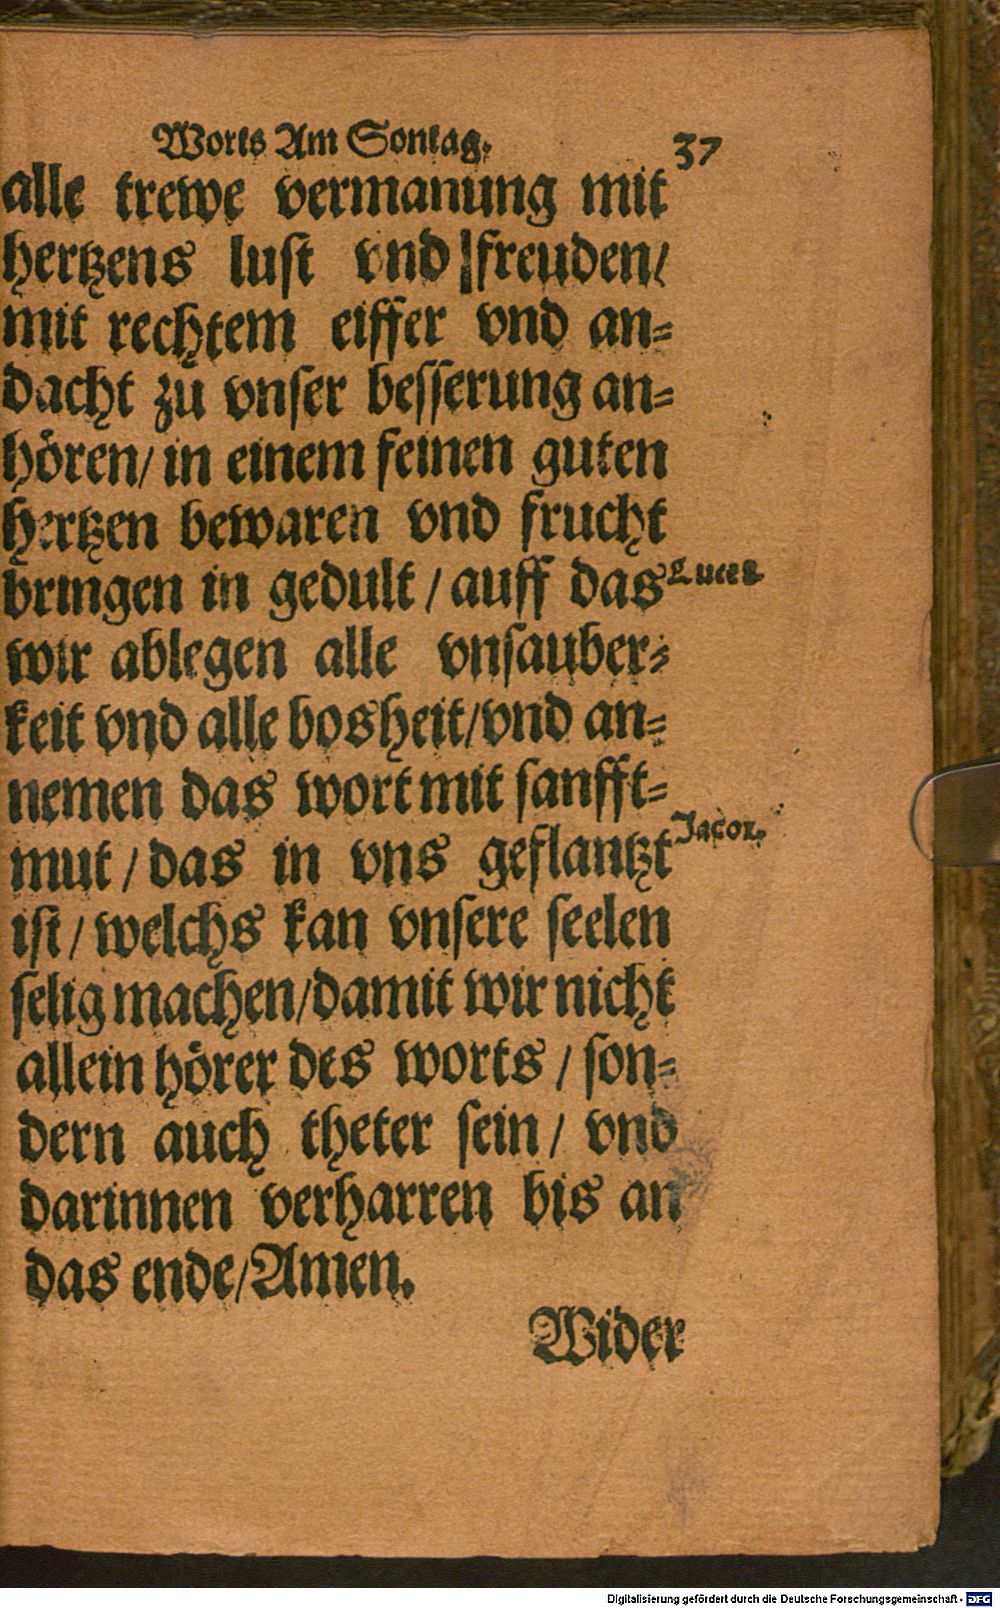 Worts Am Sontag.
37
alle trewe vermanung mit
hertzens lust vnd freuden/
mit rechtem eiffer vnd an=
dacht zu vnser besserung an=
hören/ in einem feinen guten
hertzen bewaren vnd frucht
bringen in gedult / auff das
wir ablegen alle vnsauber=
keit vnd alle bosheit/vnd an=
nemen das wort mit sanfft=
mut / das in vns geflantzt
Jacob.
ist / welchs kan vnsere seelen
selig machen/damit wir nicht
allein hörer des worts / son=
dern auch theter sein / vnd
darinnen verharren bis an
das ende/Amen.
Wider
Digitalisierung gefördert durch die Deutsche Forschungsgemeinschaft - DFG